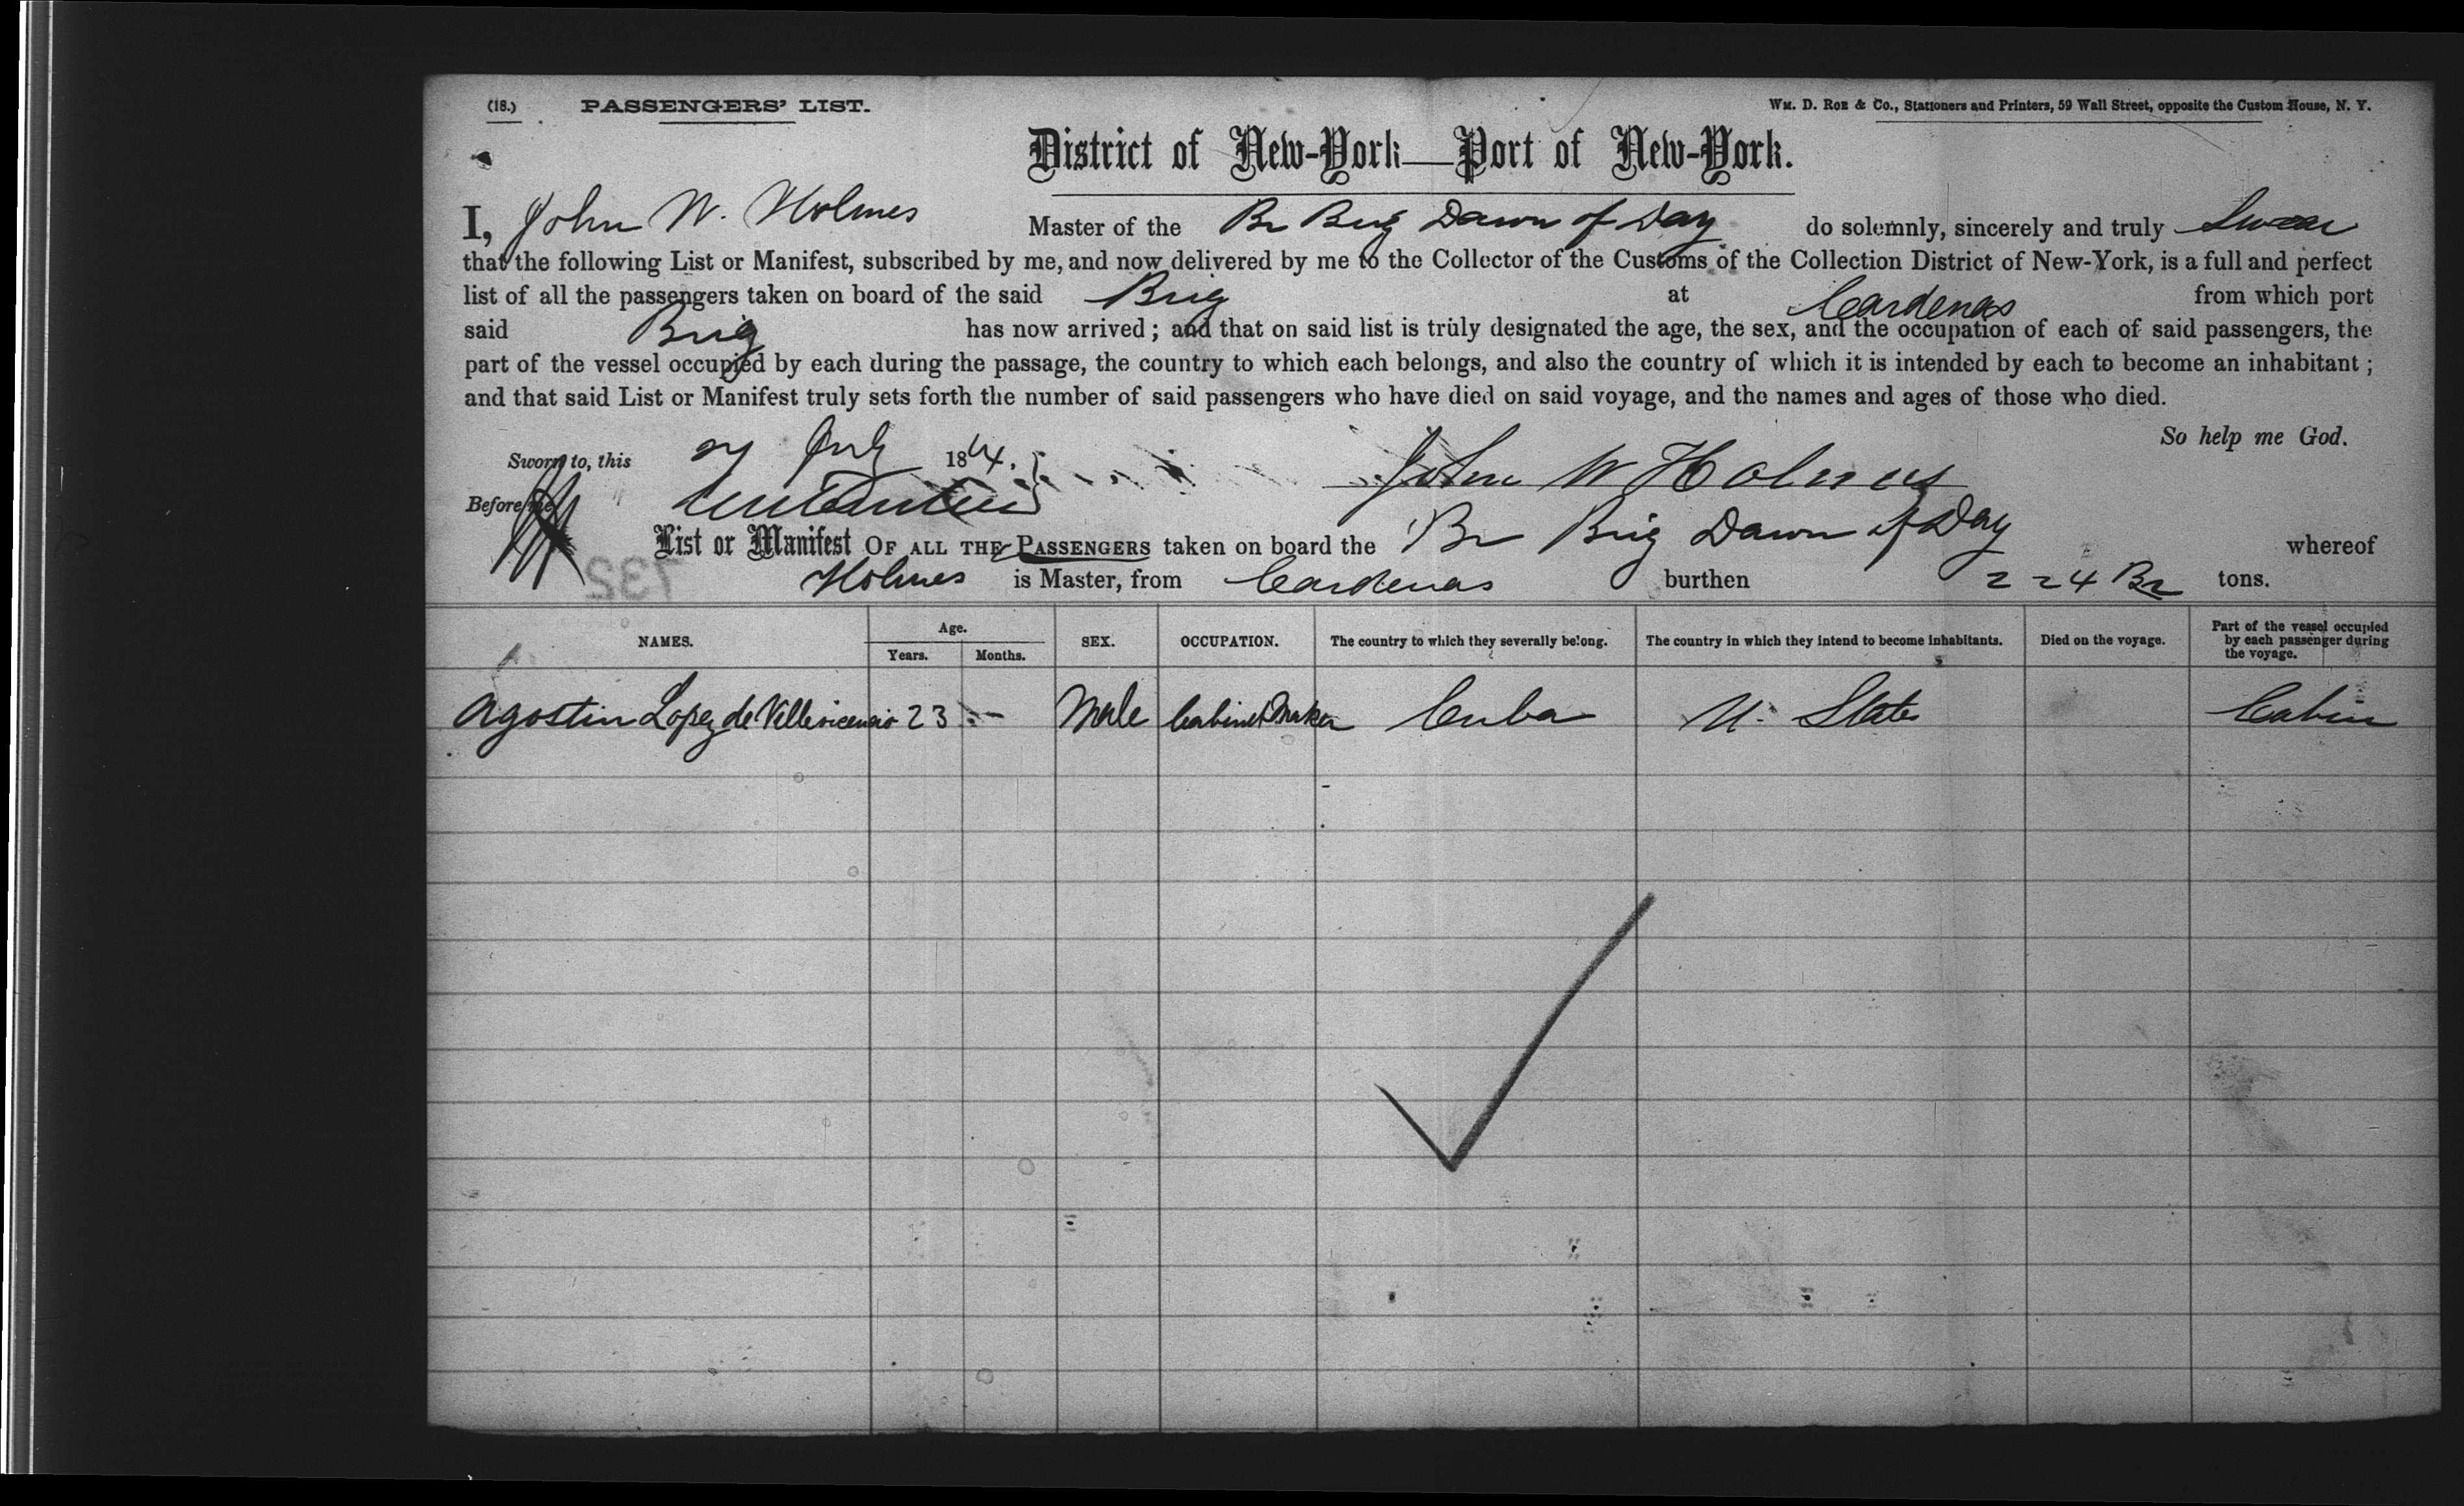 (18.) PASSENGERS' LIST. Wm. D. Roe & Co., Stationers and Printers, 59 Wall Street, opposite the Custom House, N. Y.
District of New-York—Port of New-York.
I, John W. Holmes Master of the Br Brig Dawn of Day do solemnly, sincerely and truly Swear
that the following List or Manifest, subscribed by me, and now delivered by me to the Collector of the Customs of the Collection District of New-York, is a full and perfect
list of all the passengers taken on board of the said Brig at Cardenas from which port
said Brig has now arrived; and that on said list is truly designated the age, the sex, and the occupation of each of said passengers, the
part of the vessel occupied by each during the passage, the country to which each belongs, and also the country of which it is intended by each to become an inhabitant;
and that said List or Manifest truly sets forth the number of said passengers who have died on said voyage, and the names and ages of those who died.
So help me God.
Sworn to, this July 1864. John W Holmes
Before me
List or Manifest OF ALL THE PASSENGERS taken on board the Br Brig Dawn of Day whereof
Holmes is Master, from Cardenas burthen 224 Br tons.
732
NAMES. Age. Years. Months. SEX. OCCUPATION. The country to which they severally belong. The country in which they intend to become inhabitants. Died on the voyage. Part of the vessel occupied by each passenger during the voyage.
Agostin Lopez de Villavicencio 23 - Male Cabinet Maker Cuba U. States Cabin